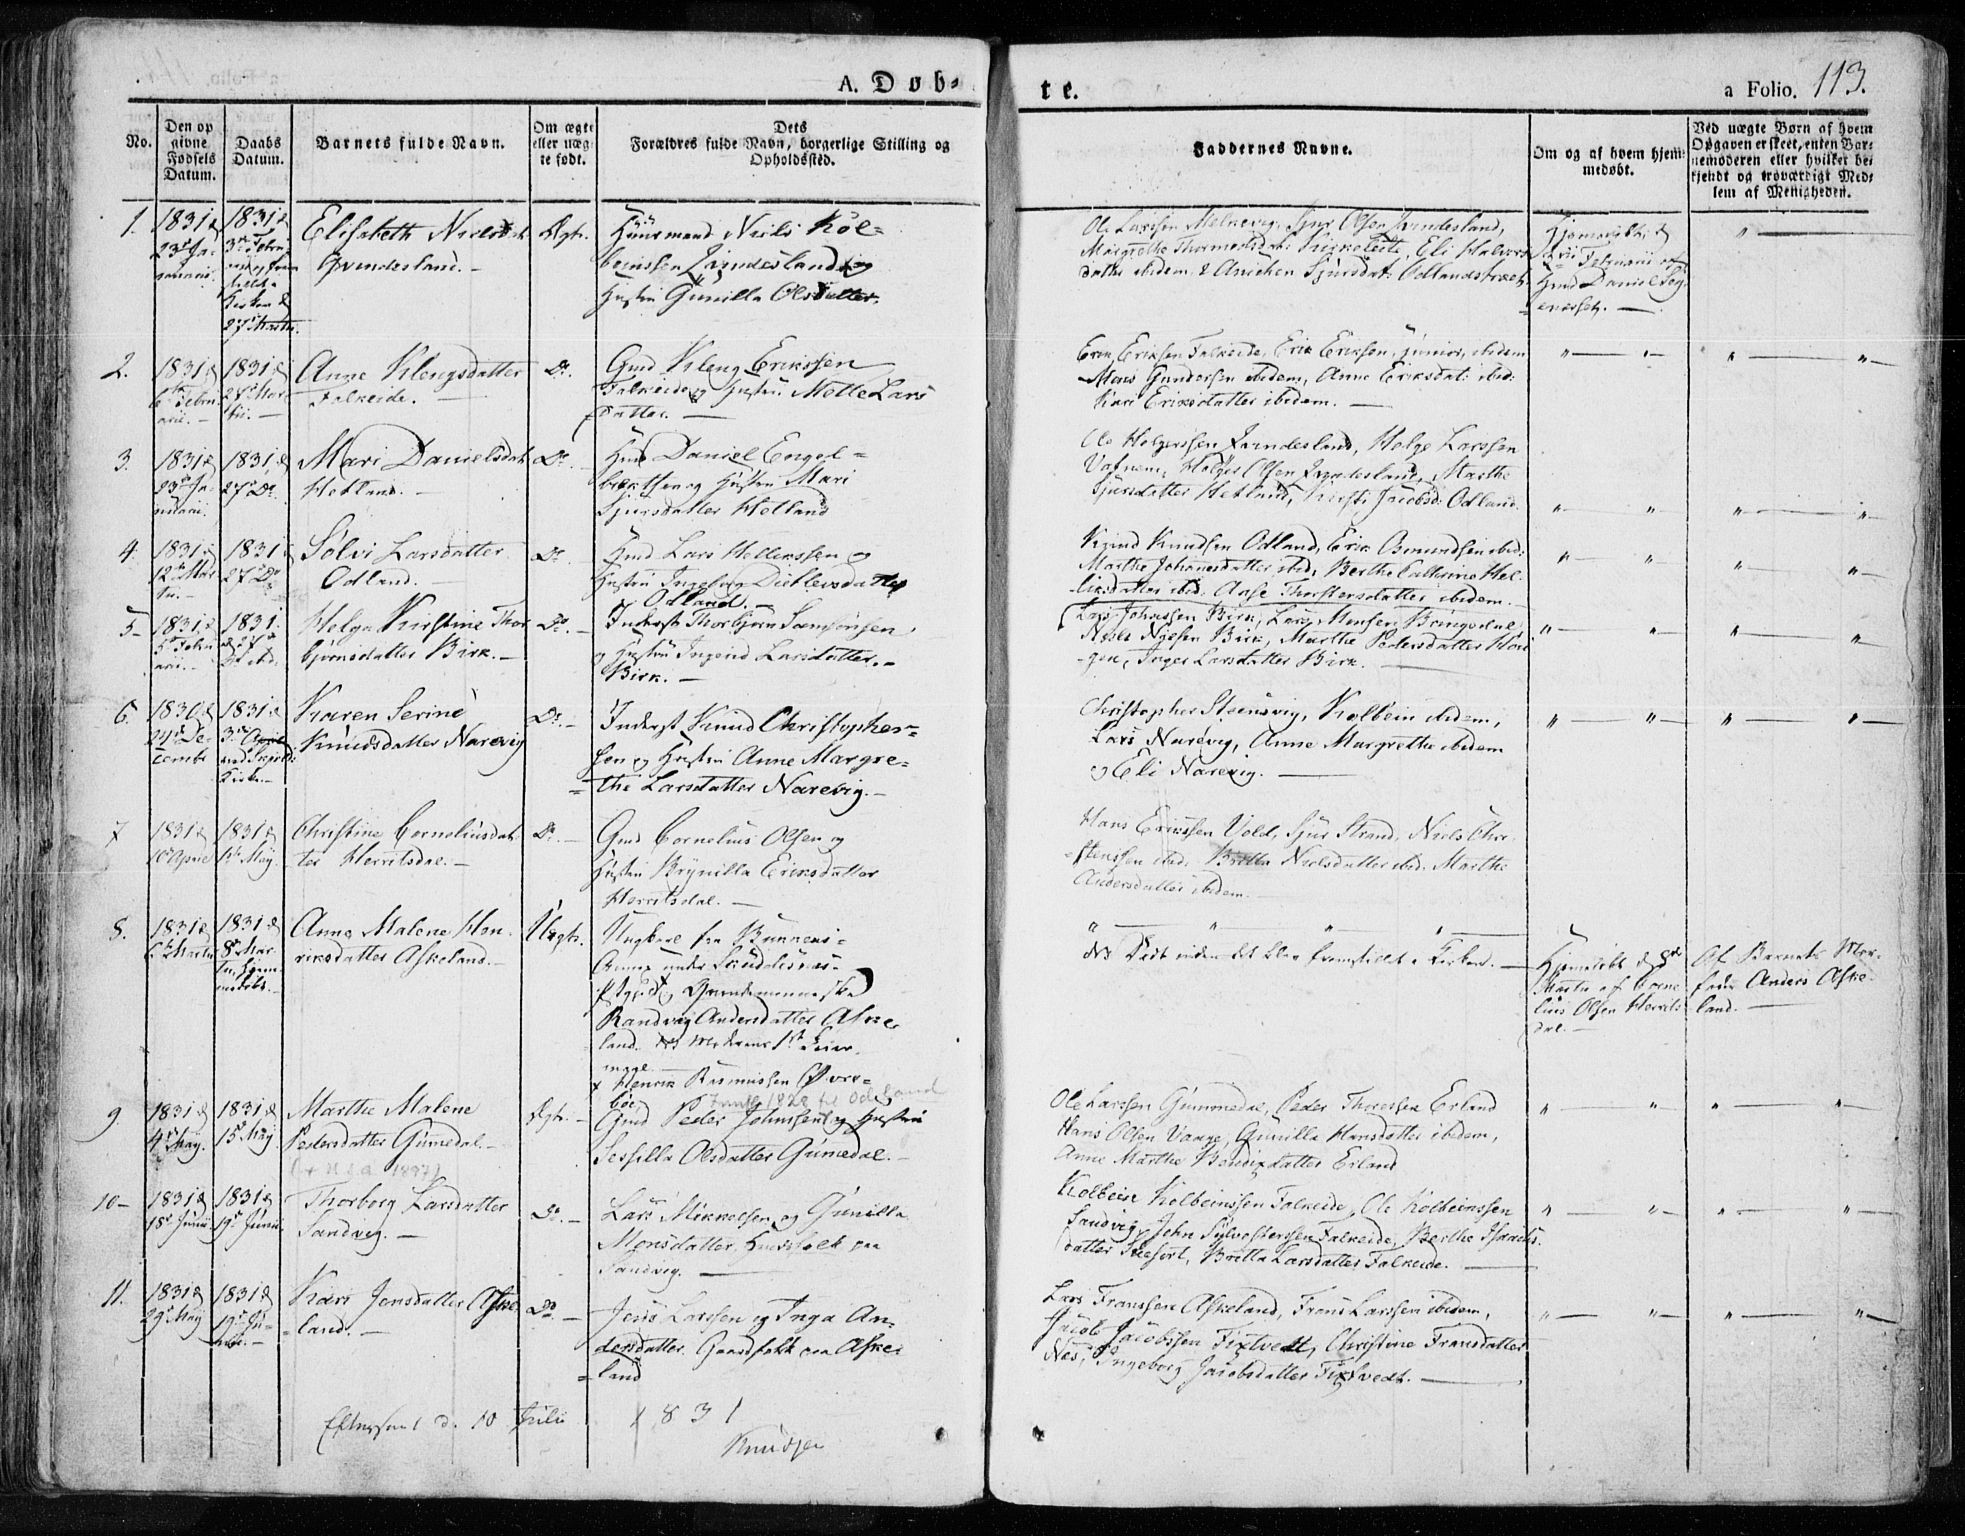 A. Døb-
te.
a Folio. 113.
No.
Den op
givne
Fødsels
Datum.
Daabs
Datum.
Barnets fulde Navn.
Om ægte
eller uæg
te født.
Dets
Forældres fulde Navn, borgerlige Stilling og
Opholdssted.
Faddernes Navne.
Om og af hvem hjem-
medøbt.
Ved uægte Børn af hvem
Opgaven er skeet, enten Bar-
nemoderen eller hvilket be-
kjendt og troværdigt Med-
lem af Menigheden.
1.
1831 d
23de Ja-
nuarii.
1831 d
3de Febru
27de Martii.
Elisabeth Nielsdat
Qvindesland. -
Ægt.
Huusmand Niels Kol-
beinssen Qvindesland og
Hustru Gunilla Olsdatter.
Ole Larssen Melkevig, Sjur Olsen Qvindesland,
Margrethe Thormodsdat: Kirkeleite, Eli Halvors
datter ibidem & Anichen Sjursdat: Odlandstræet
Hjemmedøbt d
Februarii af
Hmd Daniel
2.
1831 d
6te Febru
arii. -
1831 d
27de Mar
tii. -
Anne Klengsdatter
Falkeide. -
Do.
Gmd Kleng Erikssen
Falkeide og Hustru Mette Lars
datter. -
Erik Eriksen Falkeide, Erik Eriksen junior, ibidem
Mons Gundersen ibidem, Anne Eriksdat: ibid:
Kari Eriksdatter ibidem. -
3.
1831 d
23de Ja-
nuarii.
1831 d
27de Do.
Mari Danielsdat
Hetland. -
Do.
Hmd Daniel Engel-
brektsen og Hustru Mari
Sjursdatter Hetland
Ole Holgerssen Qvindesland, Helge Larssen
Vatnem, Holger Olsen Qvindesland, Marthe
Sjursdatter Hetland, Kirsti Jacobsd: Odland.
4.
1831 d
12te Mar
tii. -
1831 d
27de Do
Sølvi Larsdatter
Odland. -
Do.
Hmd Lars Hellikssen og
Hustru Ingeborg Ditlevsdatter
Odland. -
Knud Knudsen Odland, Erik Osmundsen ibid:
Marthe Johannesdatter ibid, Berthe Cathrine Hel-
liksdatter ibid. Anse Thorstensdatter ibidem. -
5 -
1831 d
5te Febru
arii. -
1831.
Helga Kirstine Thor
bjørnsdatter Birk. -
Do. -
Inderst Thorbjørn Samsonsen
og Hustru Ingerid Larsdatter. -
Birk. -
Lars Johnssen Birk, Lars Monsen Bringedal,
Niels Nilssen Birk, Marthe Pedersdatter Høi
gen, Inger Larsdatter Birk. -
6.
1830 d
24de De-
cembr
1831 d
3de April
ved Skjolds
Kirke. -
Karen Serine
Knudsdatter Narevig
Do. -
Inderst Knud Christopher-
sen og Hustru Anne Margre-
the Larsdatter Narevig. -
Christopher Steensvig, Kolbein ibidem,
Lars Narevig, Anne Margrethe ibidem
og Eli Narevig. -
7
1831 d
10de April
1831 d
1ste May.
Christine Corneliusdat-
ter Herritsdal. -
Do. -
Gmd Cornelius Olsen og
Hustru Brynilla Eriksdatter
Herritsdal. -
Hans Erikssen Vold, Sjur Strand, Niels Chri-
stenssen ibid, Britta Nielsdatter ibid. Marthe
Andersdatter ibidem.
8.
1831 d
6te Martii
1831 d
8de Mar-
tii, hjem-
medøbt. -
Anne Malene Hen-
riksdatter Askeland. -
Uægt.
Ungkarl fra
Annex under Skudesnæs-
Præstegjeld, Qvindemenneske
Randvaag Andersdatter Aske
land. NB Moderens 1ste Leier-
maal.
x Henrik Rasmussen Øvre-
bøe,
NB Død inden det blev fremstillet i Kirken. -
Hjemmedøbt d 8de
Martii af Corne
lius Olsen Herrits
dal. -
Af Barnets Mor-
fader Anders Aske-
land. -
9.
1831 d
4de May.
1831 d
15de May.
Marthe Malene
Pedersdatter Gumedal. -
(+ U.S.A. 1897)
Ægt. -
1828 til Odland
Gmd Peder Johnsen og Hustru
Sessilla Olsdatter Gumedal. -
Ole Larssen Gummedal, Peder Thoressen Erland
Hans Olsen Vaage, Gunilla Hansdatter ibidem,
Anne Marthe Bendixdatter Erland
10 -
1831 d
18de Junii
1831 d
19de Junii
Thorborg Larsdatter
Sandvig. -
Do. -
Lars Mikkelsen og Gunilla
Monsdatter, Huusfolk paa
Sandvig. -
Kolbein Kolbeinssen Falkeide, Ole Kolbeinssen
Sandvig, John Sylvesterssen Falkeide, Berthe Isaachs-
datter, Britta Larsdatter Falkeide. -
11.
1831 d
29de May
1831 d
19de Ju-
nii. -
Kari Jensdatter Aske
land. -
Do. -
Jens Larssen og Inga An-
dersdatter. Gaardfolk paa Aske-
land
Lars Franssen Askeland, Frans Larssen ibidem,
Jacob Jacobssen Fixtvedt, Christine Fransdatter
Næs, Ingeborg Jacobsdatter Fixtvedt. -
Efterseet d. 10 Julii 1831
Knudsen